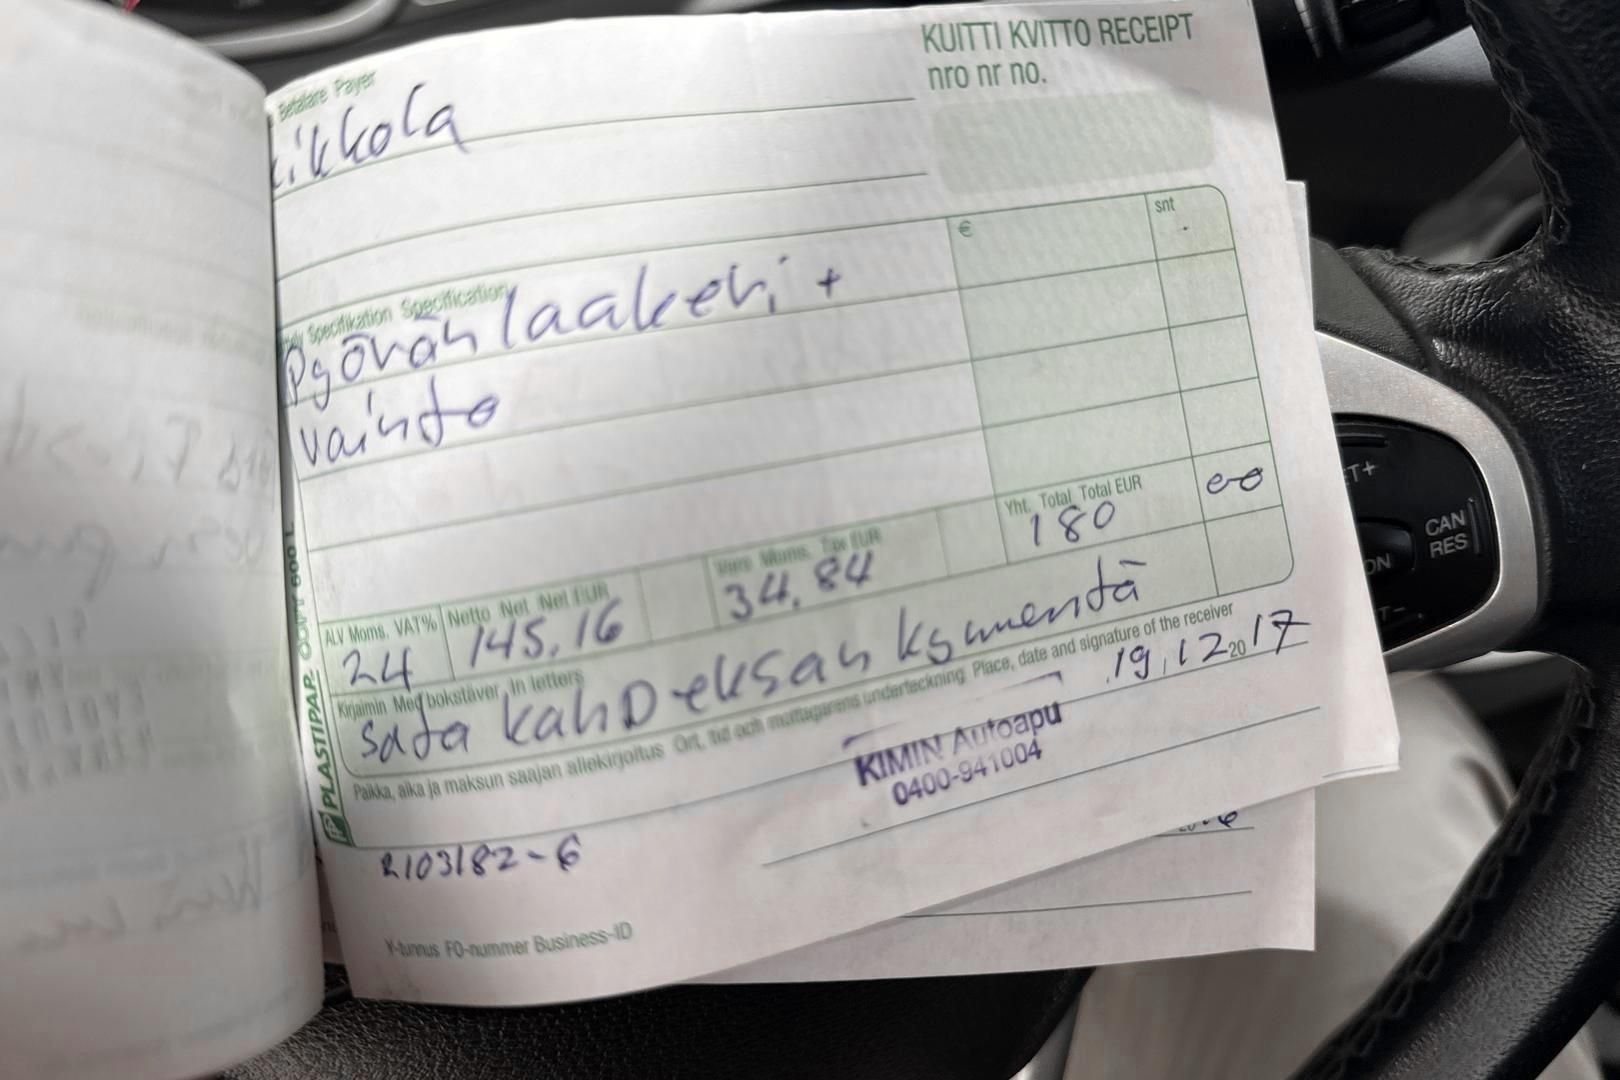 KUITTI KVITTO RECEIPT
nro nr no.
Betalare Payer
ikkola
€ snt
Specifikation Specification
Pyörän laakeri +
vainto
ALV Moms. VAT% Netto Net. Net EUR Vero Moms. Tax EUR Yht. Total Total EUR
24 145,16 34,84 180 00
Kirjaimin Med bokstäver In letters
sata kahDeksan kymentä
Paikka, aika ja maksun saajan allekirjoitus Ort, tid och mottagarens underteckning Place, date and signature of the receiver
19.12.2017
KIMIN Autoapu
0400-941004
2103182-6
Y-tunnus FO-nummer Business-ID
PLASTIPAP
CAN
RES